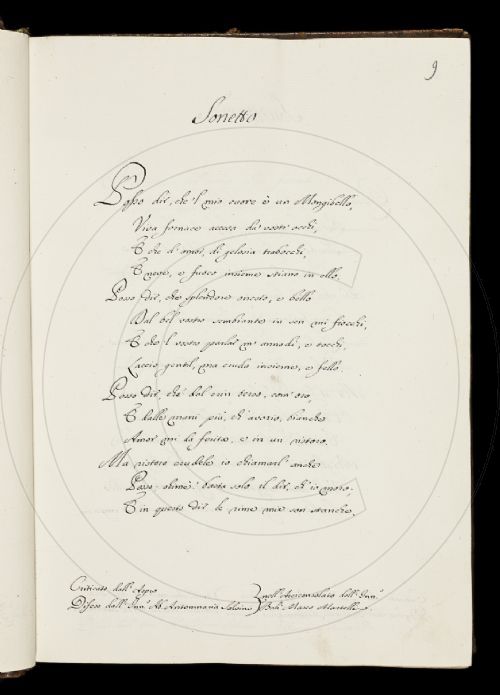 9
Sonetto
Posso dir, che 'l mio cuore è un Mongibello,
Viva fornace accesa da vostr' occhi,
E che d'amor, di gelosia trabocchi,
E neve, e fuoco insieme stiano in ello.
Posso dir, che splendore onesto, e bello
Dal bel vostro sembiante in sen mi fiocchi,
E che 'l vostro parlar m'annodi, e tocchi,
Laccio gentil, ma crudo insieme, e fello.
Posso dir, che dal crin terso, com' oro,
E dalle mani più, ch'avorio, bianche
Amor mi dà ferita, e in un ristoro.
Ma ristoro crudele io chiamarl' anche
Posso, ohime! basta solo il dir, ch'io moro;
E in questo dir le rime mie son stanche.
Criticato dall' Arpio
nell' Arciconsolato dell'
Difeso dall' Ab. Antommaria Salvini
Bali Marco Martelli